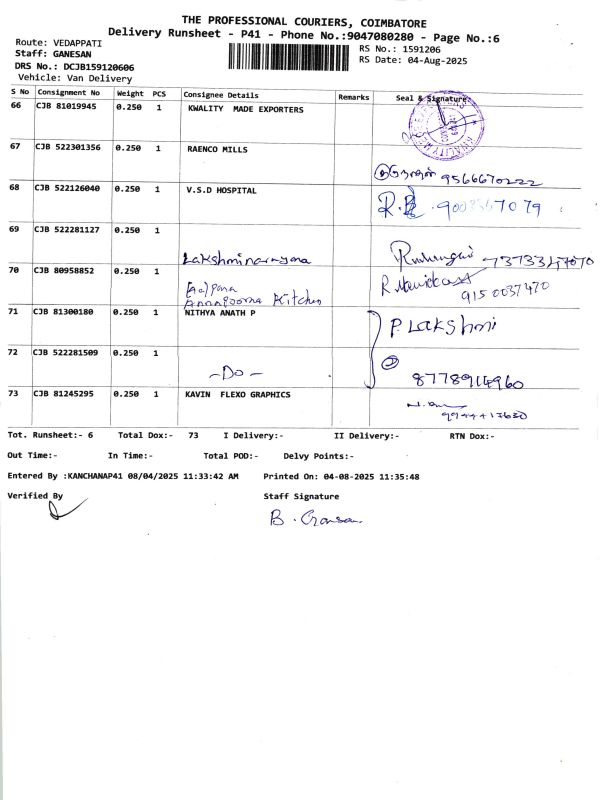 THE PROFESSIONAL COURIERS, COIMBATORE
Delivery Runsheet - P41 - Phone No.:9047080280 - Page No.:6
Route: VEDAPPATI
RS No.: 1591206
Staff: GANESAN
RS Date: 04-Aug-2025
DRS No.: DCJB159120606
Vehicle: Van Delivery
S No Consignment No Weight PCS Consignee Details Remarks Seal & Signature
66 CJB 81019945 0.250 1 KWALITY MADE EXPORTERS
67 CJB 522301356 0.250 1 RAENCO MILLS
9566670222
68 CJB 522126040 0.250 1 V.S.D HOSPITAL
69 CJB 522281127 0.250 1
Lakshminarayana
70 CJB 80958852 0.250 1
Annapoorna Kitchen
9150037470
71 CJB 81300180 0.250 1 NITHYA ANATH P
P. Lakshmi
72 CJB 522281509 0.250 1
-Do-
8778914960
73 CJB 81245295 0.250 1 KAVIN FLEXO GRAPHICS
Tot. Runsheet:- 6 Total Dox:- 73 I Delivery:- II Delivery:- RTN Dox:-
Out Time:- In Time:- Total POD:- Delvy Points:-
Entered By :KANCHANAP41 08/04/2025 11:33:42 AM Printed On: 04-08-2025 11:35:48
Verified By Staff Signature